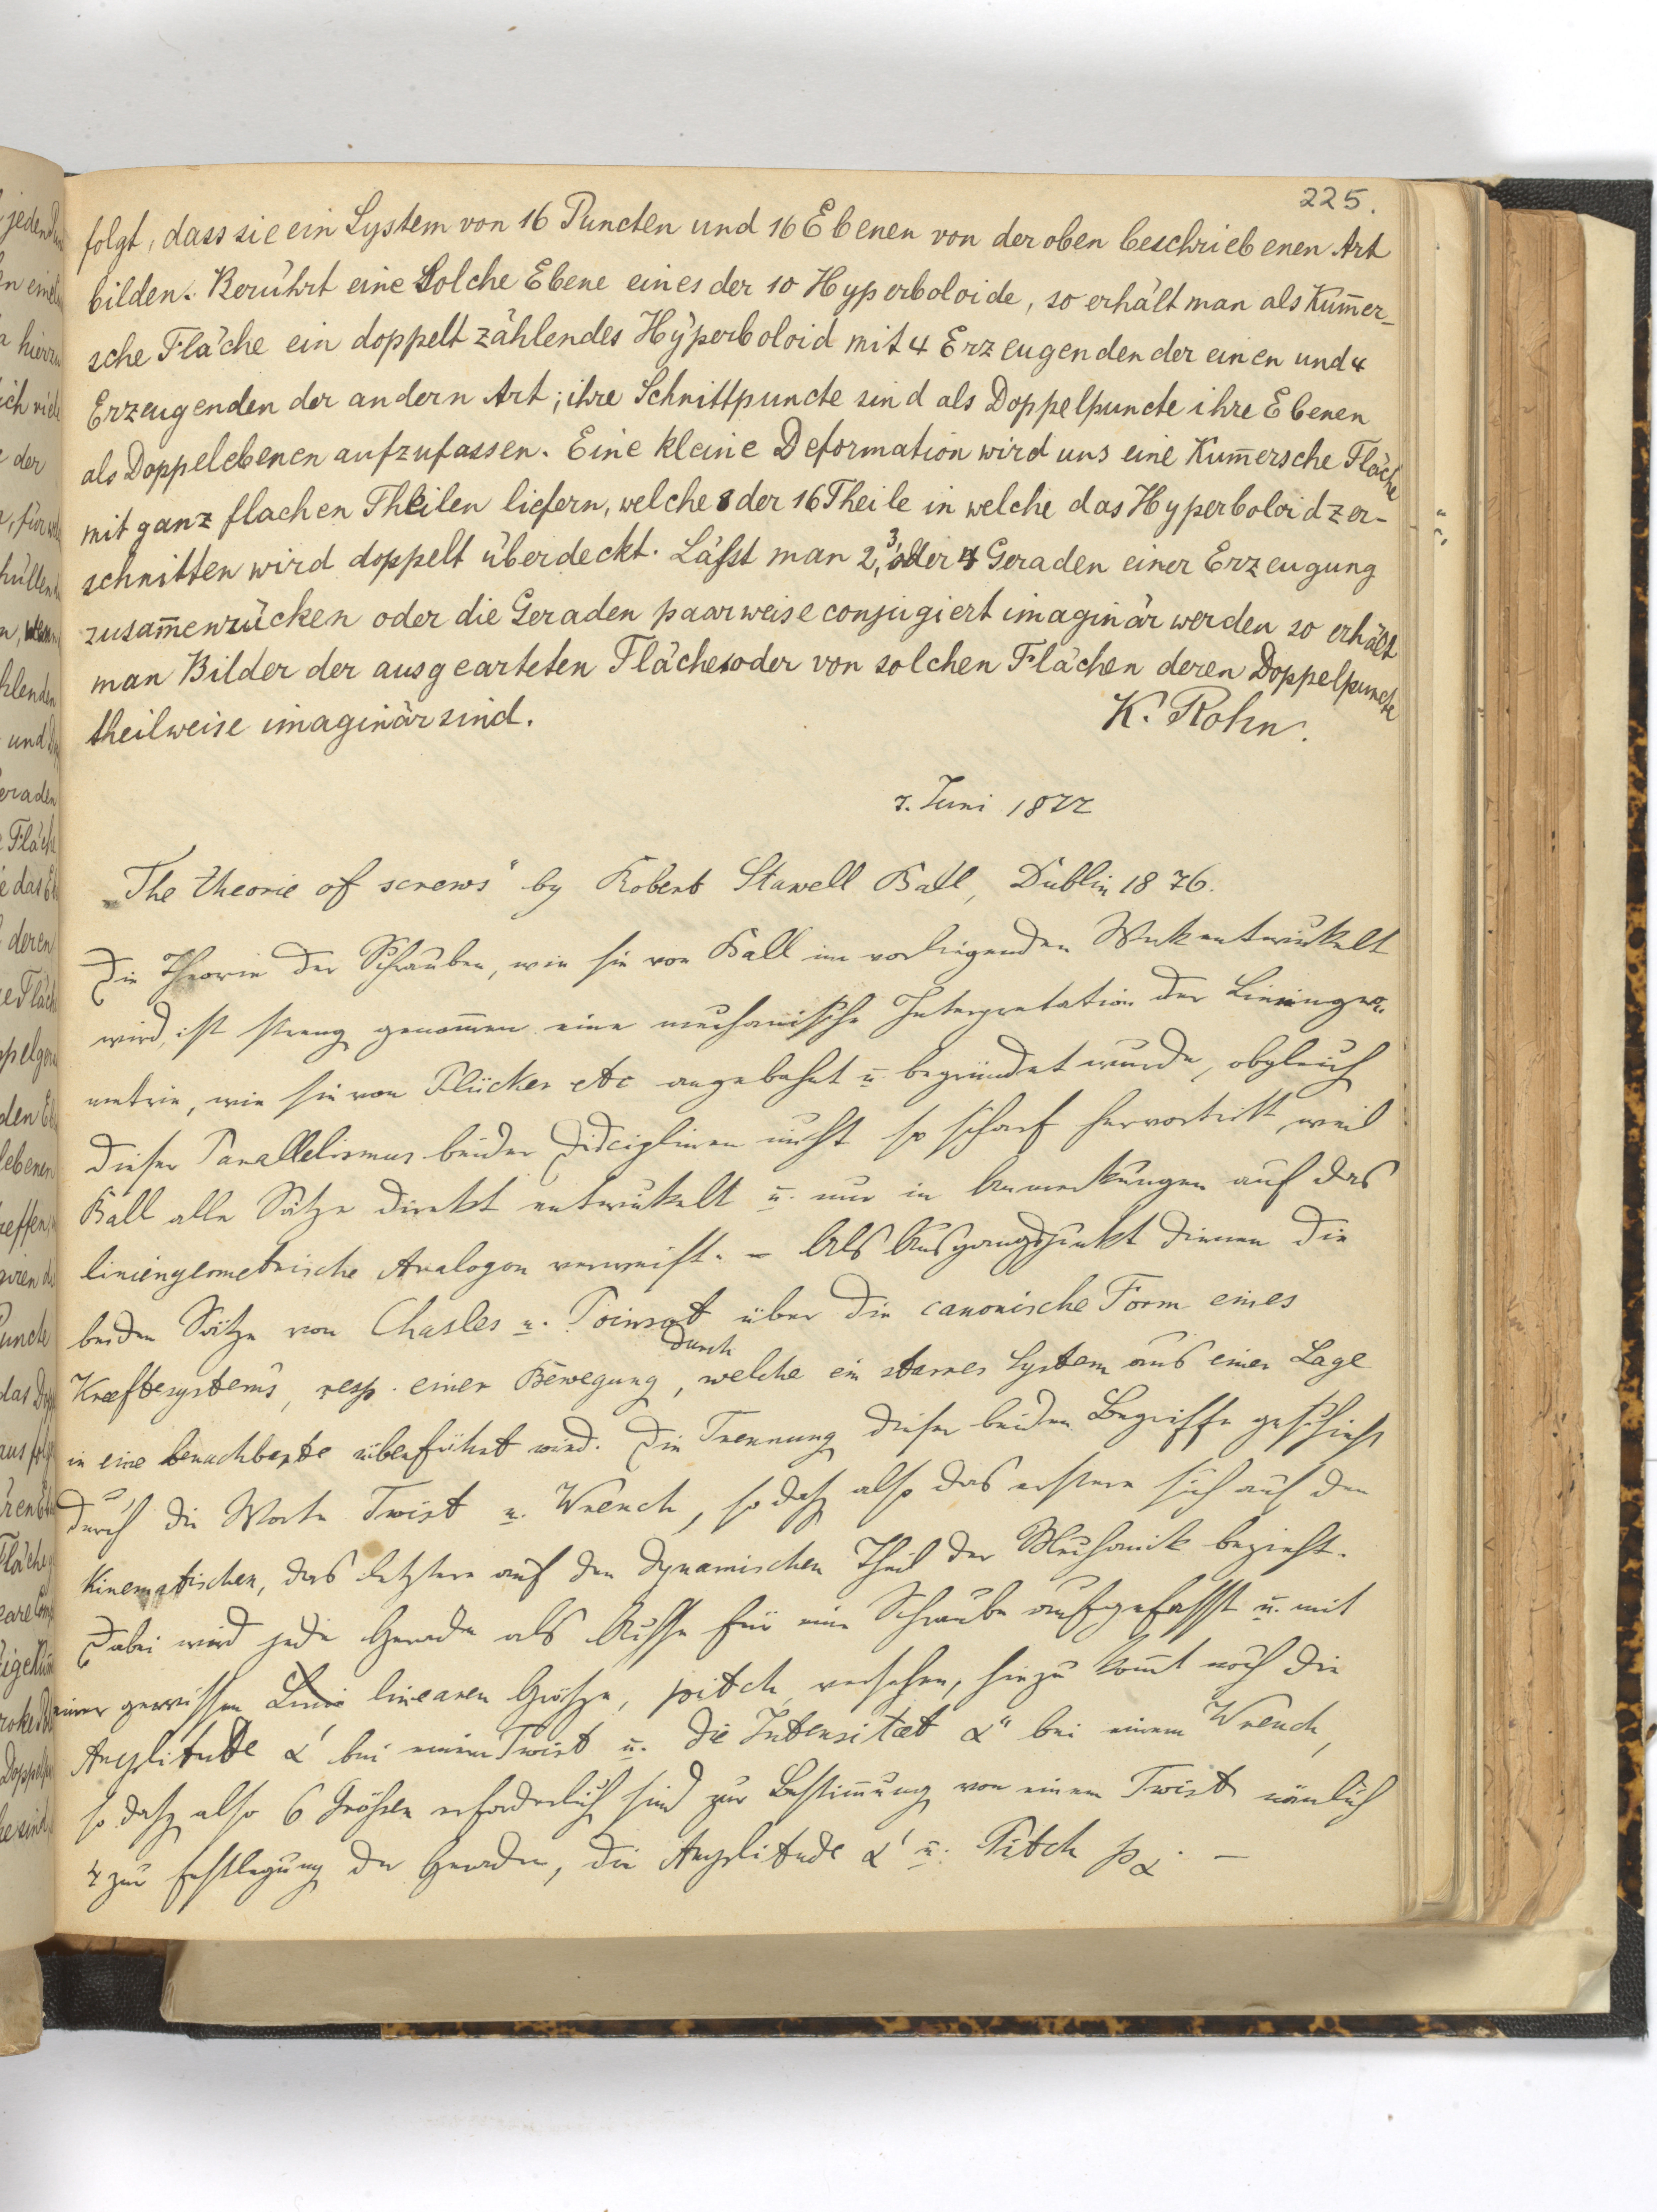 225.
folgt, dass sie ein System von 16 Puncten und 16 Ebenen von der oben beschriebenen Art
bilden. Berührt eine Solche Ebene eines der 10 Hyperboloide, so erhält man als Kum̄er-
sche Fläche ein doppelt zählendes Hyperboloid mit 4 Erzeugenden der einen und 4
Erzeugenden der andern Art; ihre Schnittpuncte sind als Doppelpuncte ihre Ebenen
als Doppelebenen aufzufassen. Eine kleine Deformation wird uns eine Kum̄ersche Fläche
mit ganz flachen Theilen liefern, welche 8 der 16 Theile in welche das Hyperboloid zer-
schnitten wird doppelt überdeckt. Läſst man 2, 3, oder 4 Geraden einer Erzeugung
zusam̄enrücken oder die Geraden paarweise conjugiert imaginär werden so erhält
man Bilder der ausgearteten Fläche oder von solchen Flächen deren Doppelpuncte
theilweise imaginär sind.
K. Rohn.
7. Juni 1877
„The theorie of screws" by Robert Stawell Ball, Dublin 1876.
Die Theorie der Schrauben, wie sie von Ball im vorliegenden Werk entwickelt
wird, ist streng genom̄en eine mechanische Interpretation der Liniengeo-
metrie, wie sie von Plücker etc angebahnt u. begründet wurde, obgleich
dieser Parallelismus beider Disciplinen nicht so scharf hervortritt, weil
Ball alle Sätze direkt entwickelt u. nur in Anmerkungen auf das
liniengeometrische Analogon verweist. – Als Ausgangspunkt dienen die
beiden Sätze von Chasles u. Poinsot über die canonische Form eines
Kræftesystems, resp. einer Bewegung, durch welche ein starres System aus einer Lage
in eine benachbarte überführt wird. Die Trennung dieser beiden Begriffe geschieht
durch die Worte Twist u. Wrench, so daß also das erstere sich auf den
kinematischen, das letztere auf den dynamischen Theil der Mechanik bezieht.
Dabei wird jede Gerade als Achse für eine Schraube aufgefasst u. mit
einer gewissen linearen Größe, pitch, versehen, hinzu kom̄t noch die
Amplitude α' bei einem Twist u. die Intensitæt α" bei einem Wrench,
so daß also 6 Größen erforderlich sind zur Bestim̄ung von einem Twist nämlich
4 zur Festlegung der Geraden, die Amplitude α' u. Pitch pα. –